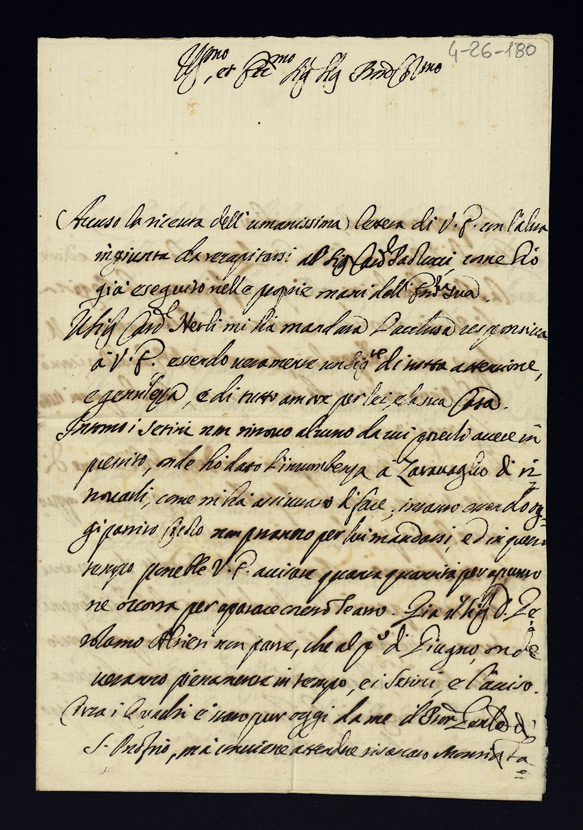 4-26-180
Ill.mo, et Ecc.mo Sig.r Sig.r Pron Col.mo
Accuso la riceuta dell'umanissima lettera di V. E. con l'altra
ingiunta da recapitarsi al Sig.r Card. Paolucci come hò
già eseguito nelle proprie mani dell' Em.za Sua.
Il Sig.r Card. Nerli mi hà mandata l'acclusa responsiva
à V. E., essendo veramente un Sig.re di tutta attenzione,
e gentilezza, e di tutto amore per lei, e la sua Casa.
Intorno i Setini non ritrovo alcuno da cui poterli avere in
prestito, onde hò dato l'incombenza a Zaravaglio di ri-
trovarli, come mi hà assicurato di fare, intanto
gi non puonno per lui mandarsi, ed in questo
tempo potrebbe V. E. avvisare quanta quantità per appunto
ne occorra per apparare cotesto Teatro. Già il Sig.r D. Ge-
rolamo Alfieri non parte, che al p.o di Giugno, onde
veranno pienamente in tempo, e i Setini, e l'avviso.
Circa i Quadri è stato pur oggi da me il
S. Onofrio, mà conviene attendere Monsù Ta-